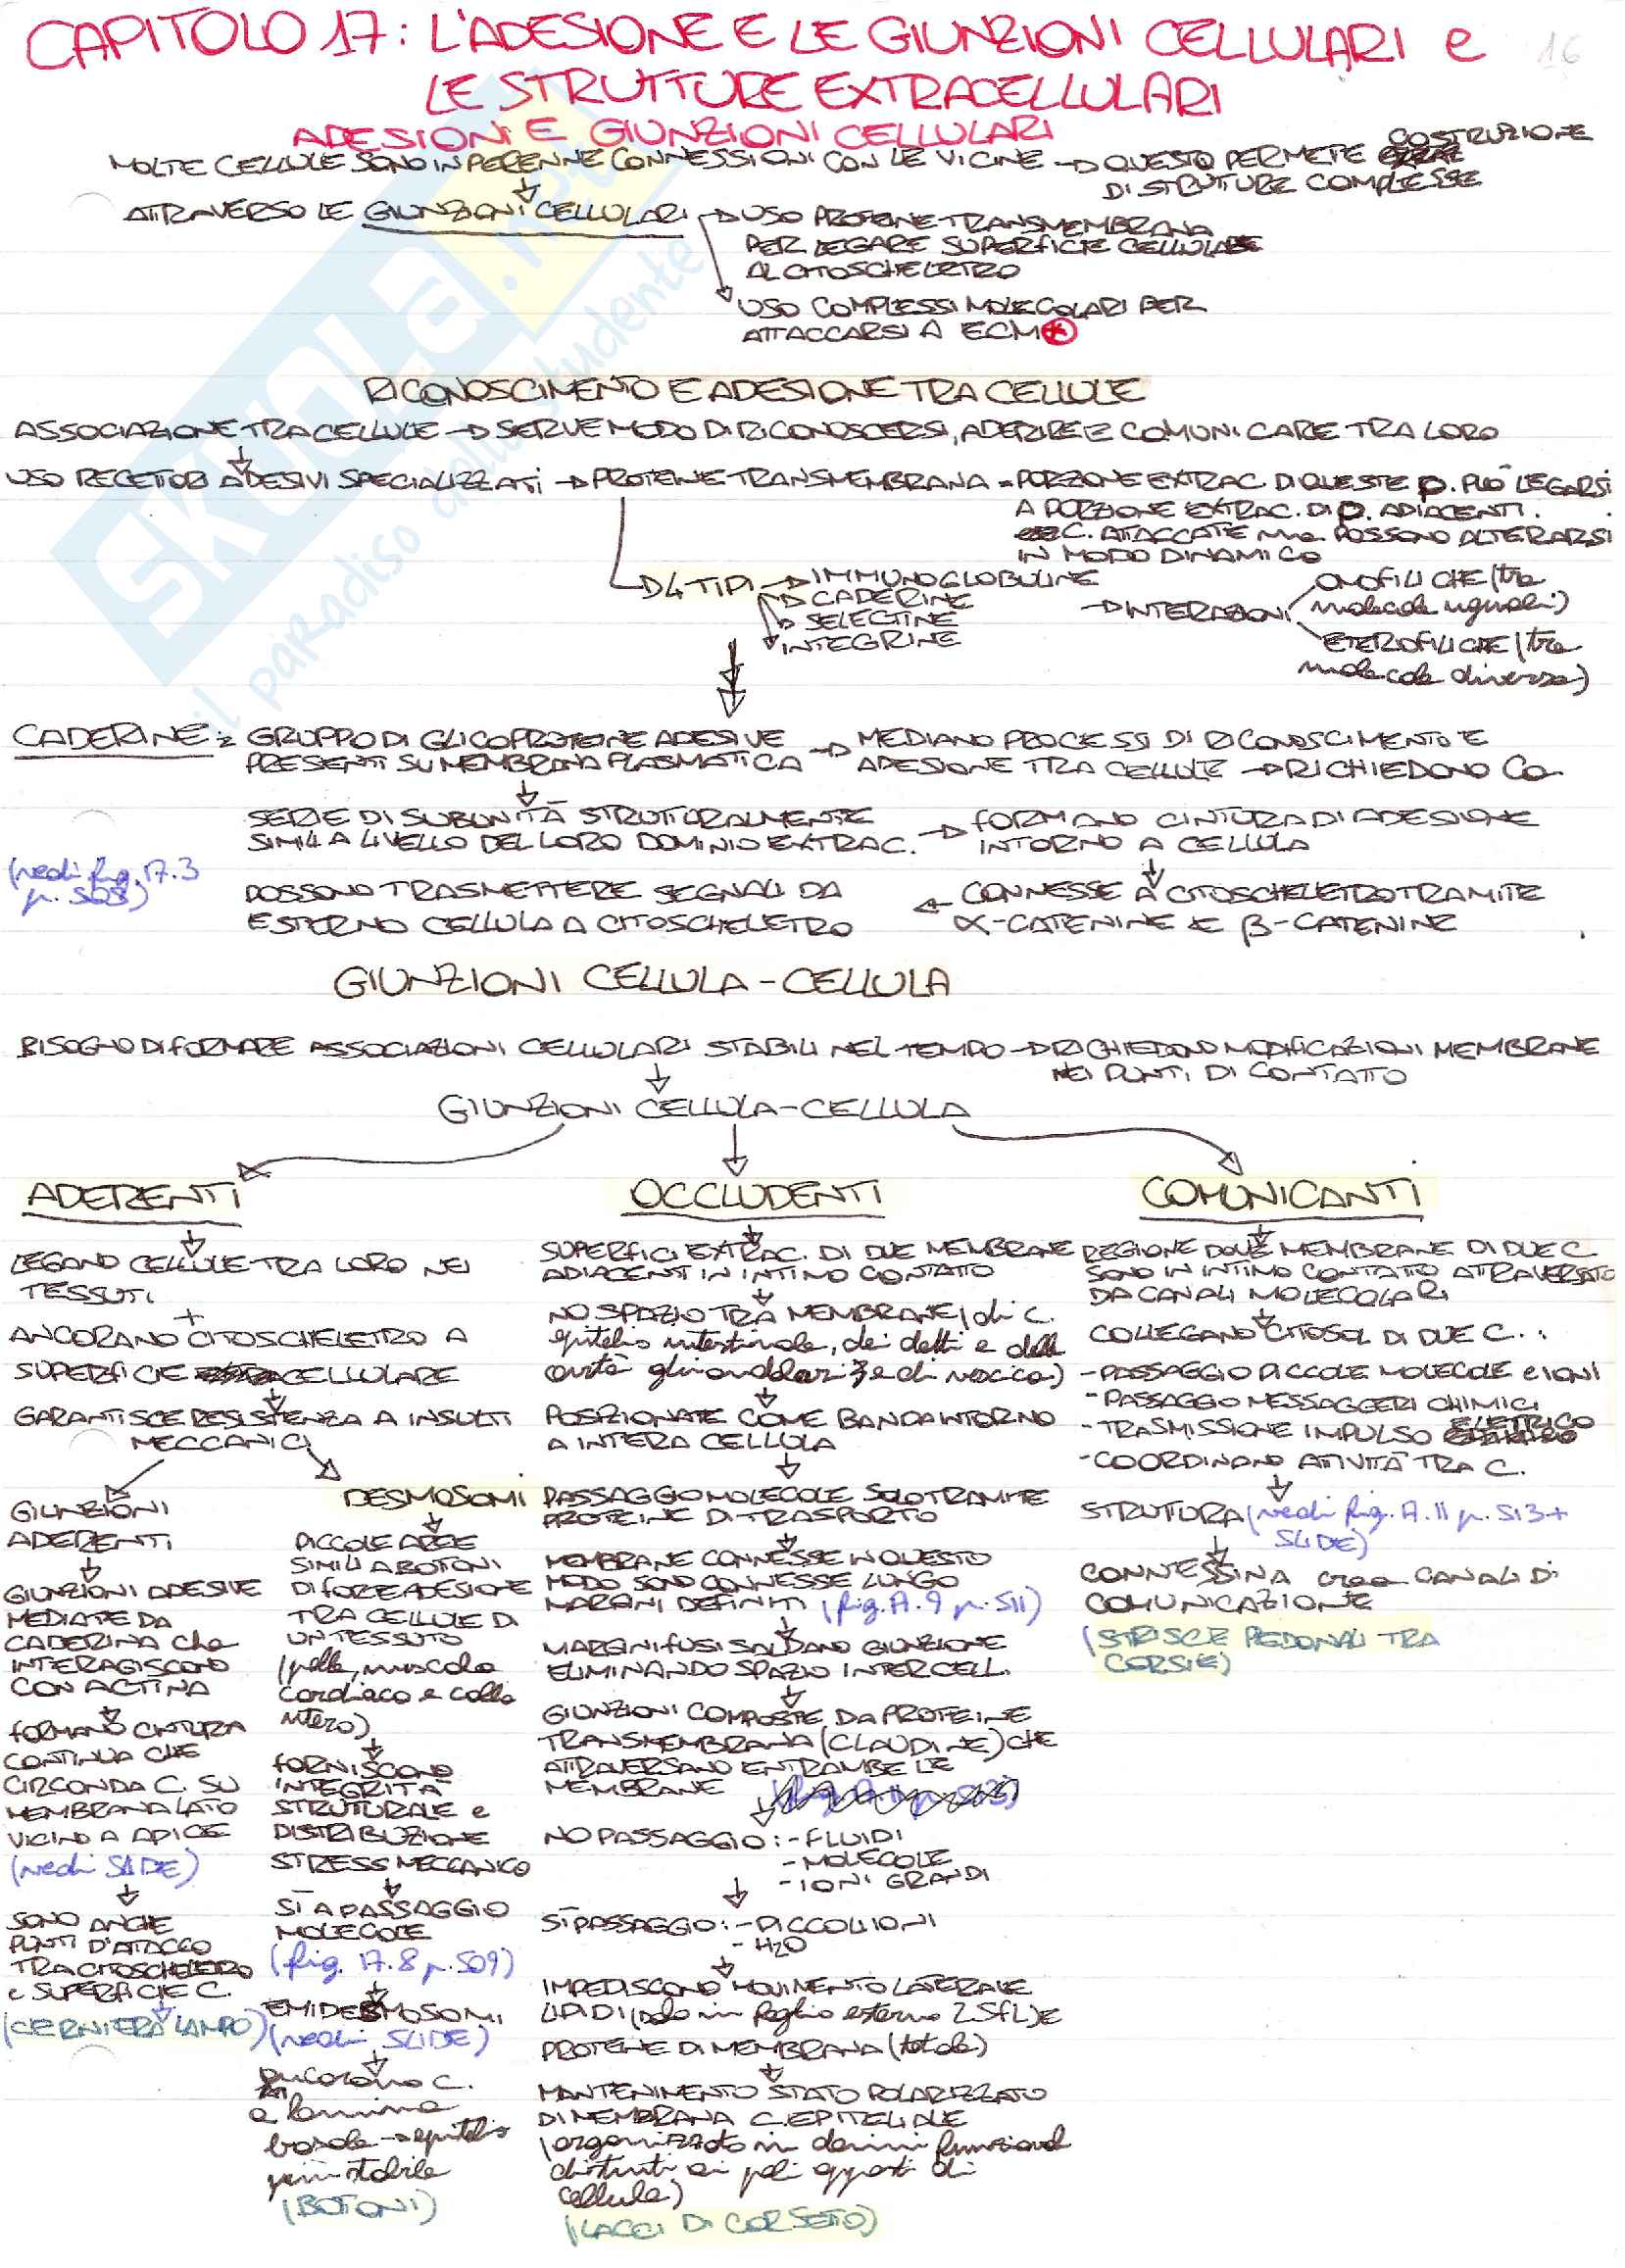 CAPITOLO 17: L'ADESIONE E LE GIUNZIONI CELLULARI e
16
LE STRUTTURE EXTRACELLULARI
ADESIONI E GIUNZIONI CELLULARI
MOLTE CELLULE SONO IN PERENNE CONNESSIONI CON LE VICINE → QUESTO PERMETE COSTRUZIONE
DI STRUTURE COMPLESSE
ATTRAVERSO LE GIUNZIONI CELLULARI → USO PROTEINE TRANSMEMBRANA
PER LEGARE SUPERFICIE CELLULARE
AL CITOSCHELETRO
USO COMPLESSI MOLECOLARI PER
ATTACCARSI A ECM *
RICONOSCIMENTO E ADESIONE TRA CELLULE
ASSOCIAZIONE TRA CELLULE → SERVE MODO DI RICONOSCERSI, ADERIRE E COMUNICARE TRA LORO
USO RECETTORI ADESIVI SPECIALIZZATI → PROTEINE TRANSMEMBRANA = PORZIONE EXTRAC. DI QUESTE p. PUÒ LEGARSI
A PORZIONE EXTRAC. DI p. ADIACENTI.
C. ATTACCATE POSSONO ALTERARSI
IN MODO DINAMICO
4 TIPI → IMMUNOGLOBULINE
CADERINE
SELECTINE
INTEGRINE
→ INTERAZIONI
OMOFILICHE (tra
molecole uguali)
ETEROFILICHE (tra
molecole diverse)
CADERINE: GRUPPO DI GLICOPROTEINE ADESIVE
PRESENTI SU MEMBRANA PLASMATICA
→ MEDIANO PROCESSI DI RICONOSCIMENTO E
ADESIONE TRA CELLULE → RICHIEDONO Ca
SERIE DI SUBUNITÀ STRUTURALMENTE
SIMILI A LIVELLO DEL LORO DOMINIO EXTRAC.
→ FORMANO CINTURA DI ADESIONE
INTORNO A CELLULA
(vedi fig. 17.3
p. 508)
POSSONO TRASMETTERE SEGNALI DA
ESTERNO CELLULA A CITOSCHELETRO
← CONNESSE A CITOSCHELETRO TRAMITE
α-CATENINE E β-CATENINE
GIUNZIONI CELLULA-CELLULA
BISOGNO DI FORMARE ASSOCIAZIONI CELLULARI STABILI NEL TEMPO → RICHIEDONO MODIFICAZIONI MEMBRANE
NEI PUNTI DI CONTATTO
GIUNZIONI CELLULA-CELLULA
ADERENTI
LEGANO CELLULE TRA LORO NEI
TESSUTI
+
ANCORANO CITOSCHELETRO A
SUPERFICIE CELLULARE
GARANTISCE RESISTENZA A INSULTI
MECCANICI
GIUNZIONI
ADERENTI
GIUNZIONI ADESIVE
MEDIATE DA
CADERINA che
INTERAGISCONO
CON ACTINA
FORMANO CINTURA
CONTINUA CHE
CIRCONDA C. SU
MEMBRANA LATO
VICINO A APICE
(vedi SLIDE)
SONO ANCHE
PUNTI D'ATTACCO
TRA CITOSCHELETRO
e SUPERFICIE C.
(CERNIERA LAMPO)
DESMOSOMI
PICCOLE AREE
SIMILI A BOTONI
DI FORTE ADESIONE
TRA CELLULE DI
UN TESSUTO
(pelle, muscolo
cardiaco e collo
utero)
FORNISCONO
INTEGRITÀ
STRUTURALE e
DISTRIBUZIONE
STRESS MECCANICO
SÌ A PASSAGGIO
MOLECOLE
(fig. 17.8 p. 509)
EMIDESMOSOMI
(vedi SLIDE)
ancorano C.
a lamina
basale → epitelio
più stabile
(BOTONI)
OCCLUDENTI
SUPERFICI EXTRAC. DI DUE MEMBRANE
ADIACENTI IN INTIMO CONTATO
NO SPAZIO TRA MEMBRANE (di C.
epitelio intestinale, dei dotti e delle
cavità ghiandolari e di vescica)
POSIZIONATE COME BANDA INTORNO
A INTERA CELLULA
PASSAGGIO MOLECOLE SOLO TRAMITE
PROTEINE DI TRASPORTO
MEMBRANE CONNESSE IN QUESTO
MODO SONO CONNESSE LUNGO
MARGINI DEFINITI (fig. 17.9 p. 511)
MARGINI FUSI SALDANO GIUNZIONE
ELIMINANDO SPAZIO INTERCELL.
GIUNZIONI COMPOSTE DA PROTEINE
TRANSMEMBRANA (CLAUDINE) CHE
ATTRAVERSANO ENTRAMBE LE
MEMBRANE
NO PASSAGGIO: - FLUIDI
- MOLECOLE
- IONI GRANDI
SÌ PASSAGGIO: - PICCOLI IONI
- H2O
IMPEDISCONO MOVIMENTO LATERALE
LIPIDI (solo in foglio esterno ) E
PROTEINE DI MEMBRANA (totale)
MANTENIMENTO STATO POLARIZZATO
DI MEMBRANA C. EPITELIALE
(organizzato in domini funzionali
distinti ai poli opposti di
cellula)
(LACCI DI CORSETO)
COMUNICANTI
REGIONE DOVE MEMBRANE DI DUE C.
SONO IN INTIMO CONTATTO ATTRAVERSATO
DA CANALI MOLECOLARI
COLLEGANO CITOSOL DI DUE C.:
- PASSAGGIO PICCOLE MOLECOLE e IONI
- PASSAGGIO MESSAGGERI CHIMICI
- TRASMISSIONE IMPULSO ELETTRICO
- COORDINANO ATTIVITÀ TRA C.
STRUTURA (vedi fig. 17.11 p. 513 +
SLIDE)
CONNESSINA crea CANALI DI
COMUNICAZIONE
(STRISCE PEDONALI TRA
CORSIE)
SKUOLA.net
il paradiso dello studente